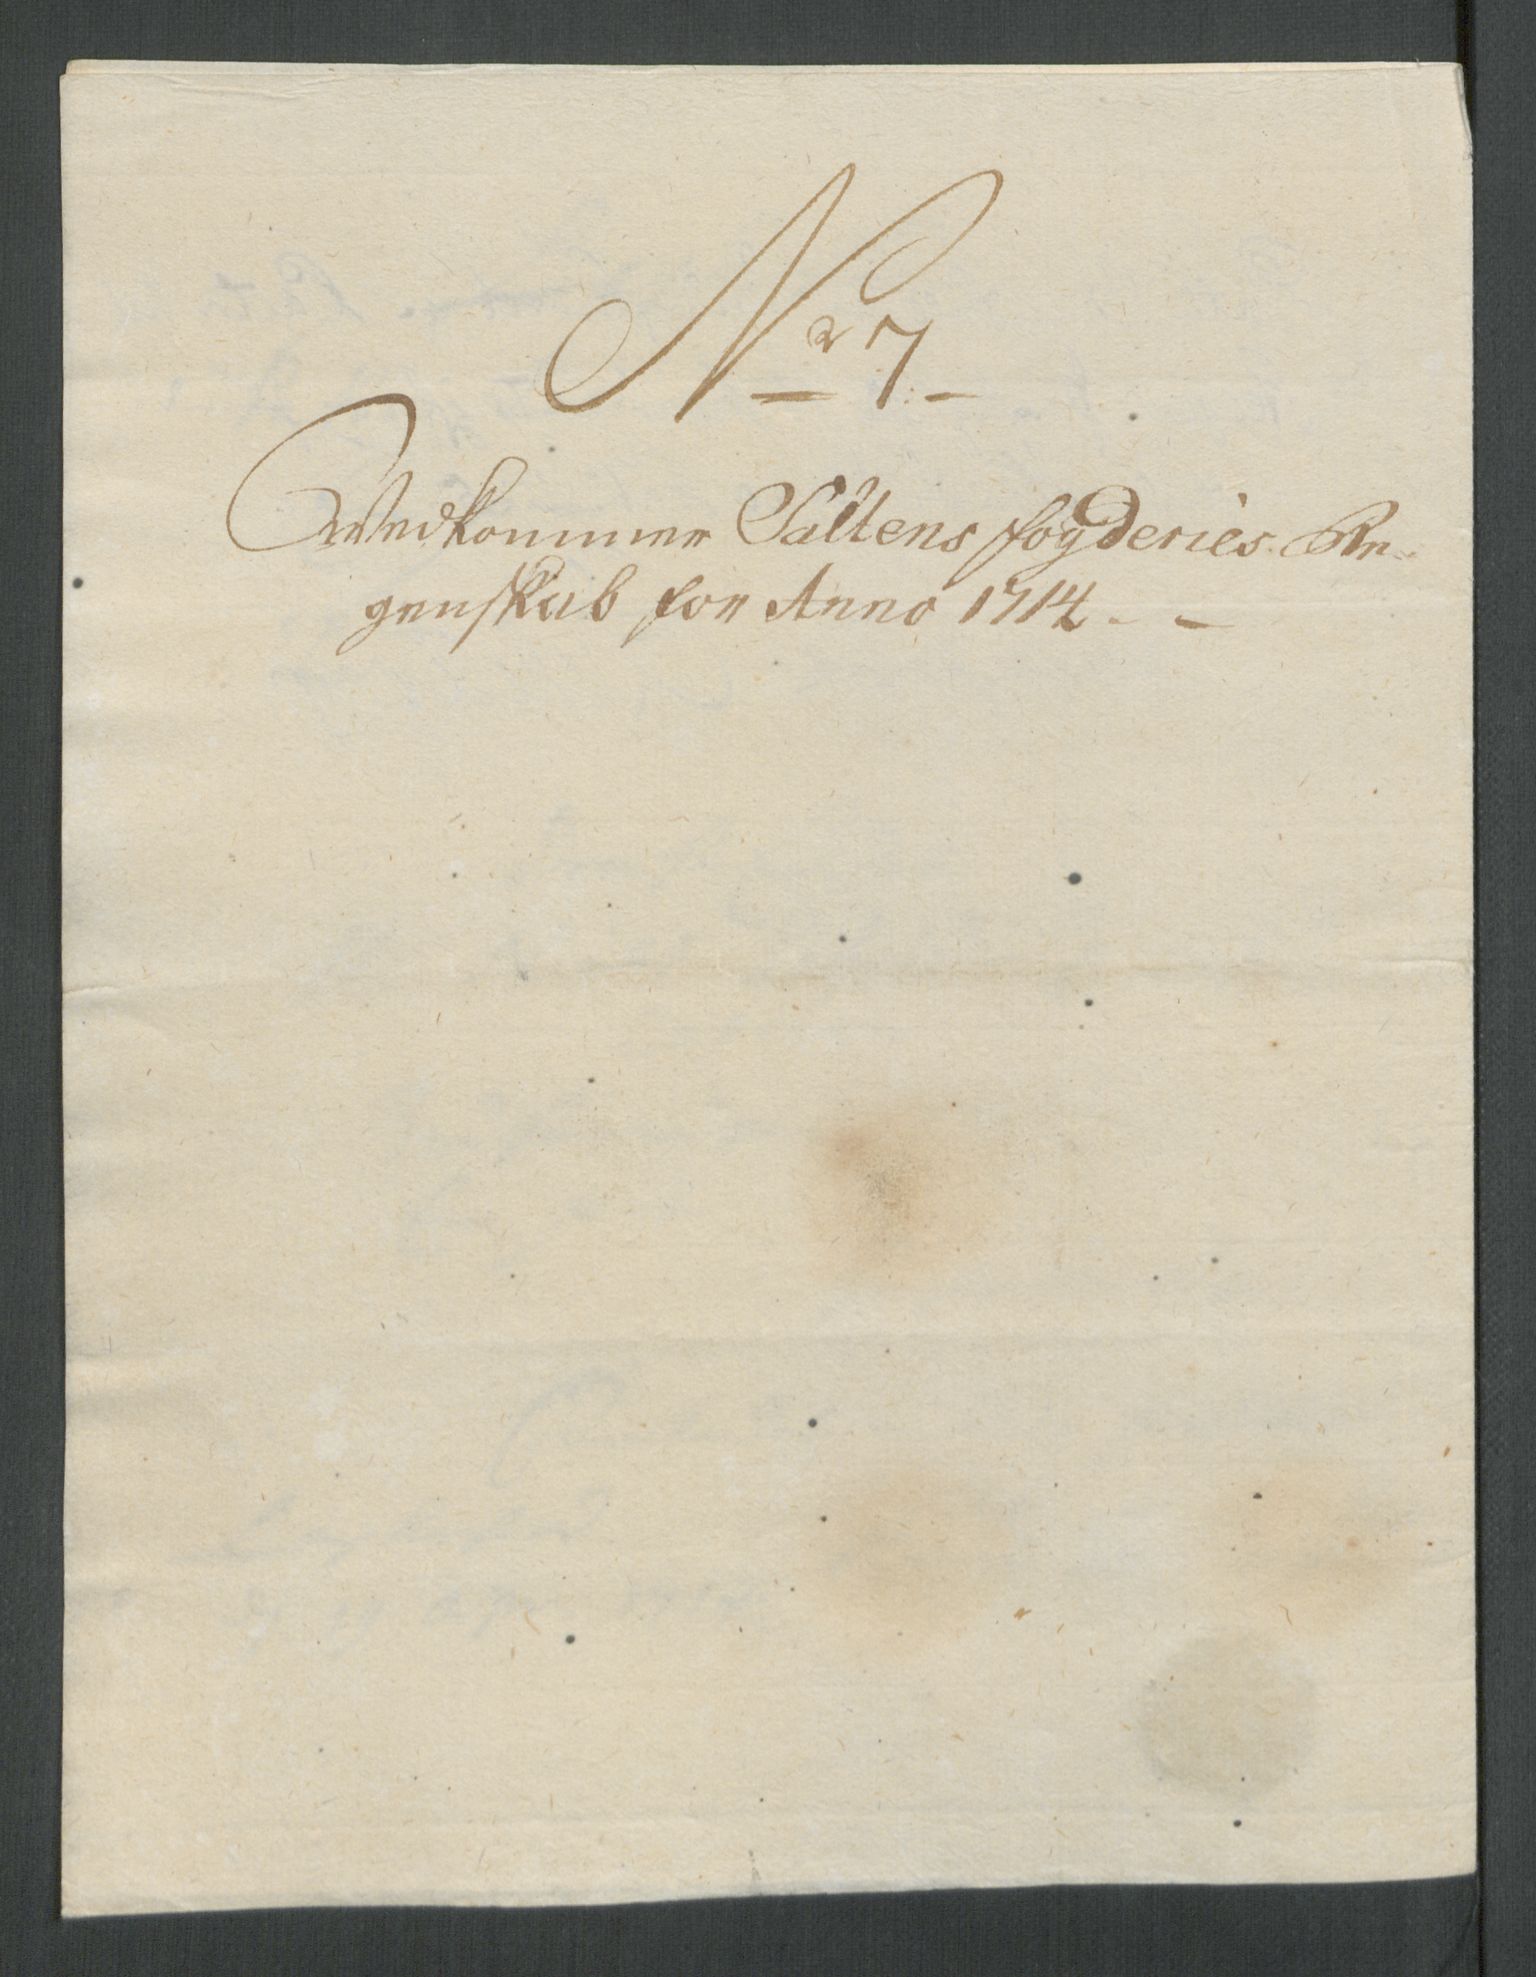 Nr 7.-
Vedkommer Saltens fogderies Re-
genskab for Anno 1714. -